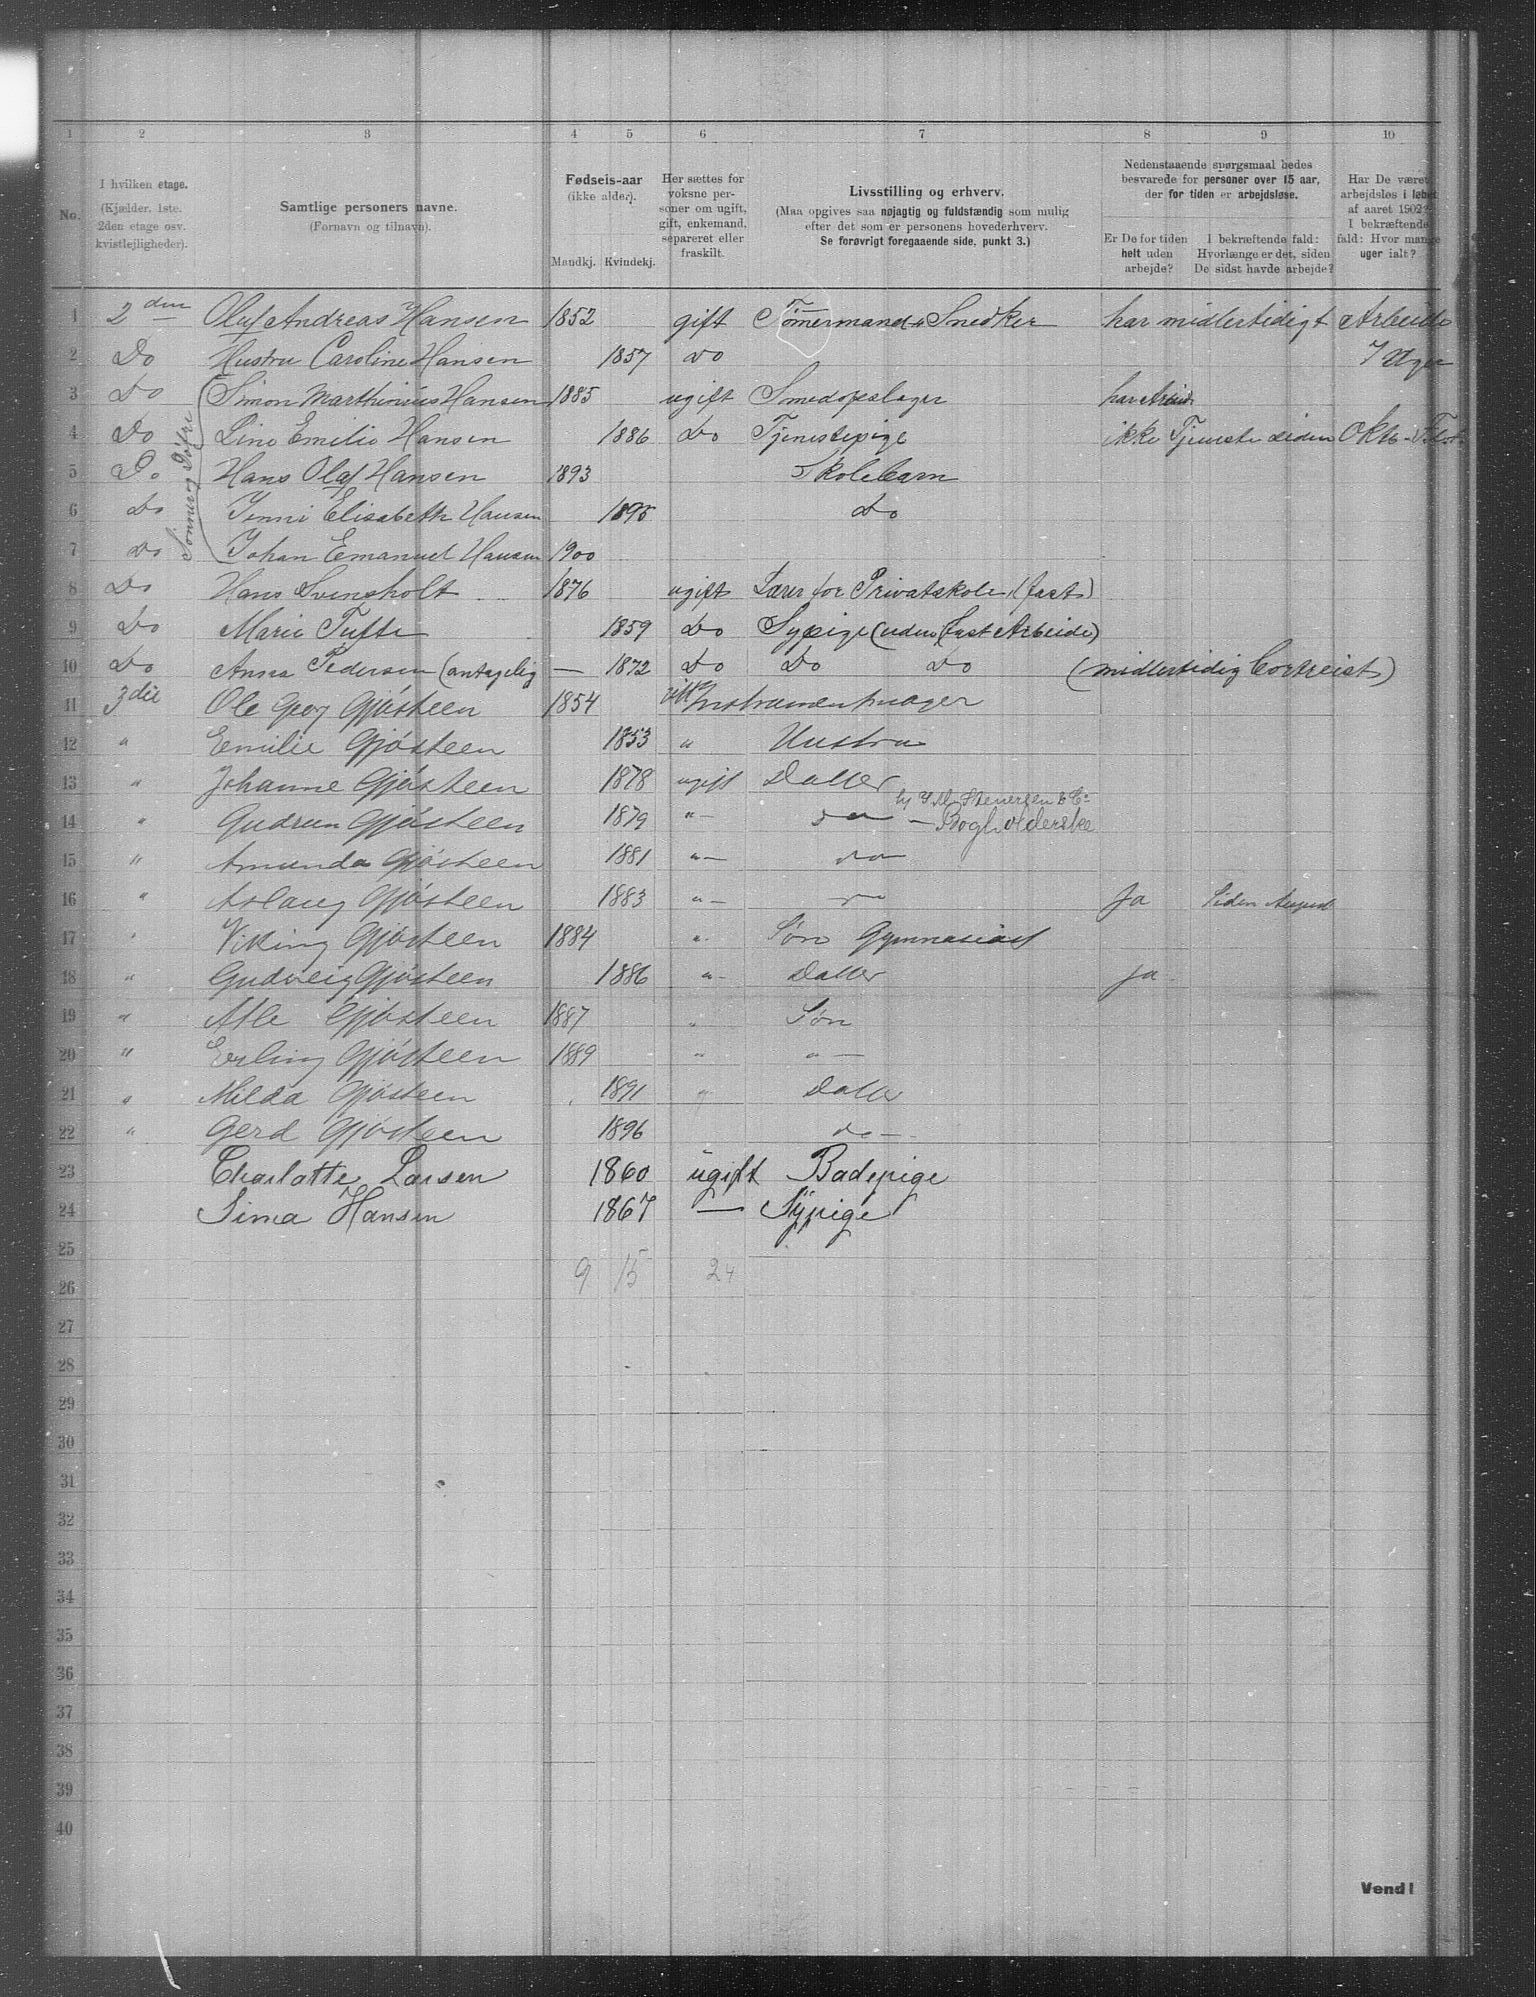 1 2 3 4 5 6 7 8 9 10
No.
I hvilken etage. (Kjælder, 1ste. 2den etage osv. kvistlejligheder).
Samtlige personers navne. (Fornavn og tilnavn).
Fødsels-aar (ikke alder). Mandkj. Kvindekj.
Her sættes for voksne personer om ugift, gift, enkemand, separeret eller fraskilt.
Livsstilling og erhverv. (Maa opgives saa nøjagtig og fuldstændig som mulig efter det som er personens hovederhverv. Se forøvrigt foregaaende side, punkt 3.)
Nedenstaaende spørgsmaal bedes besvarede for personer over 15 aar, der for tiden er arbejdsløse.
Er De for tiden helt uden arbejde?
I bekræftende fald: Hvorlænge er det, siden De sidst havde arbejde?
Har De været arbejdsløs i løbet af aaret 1902? I bekræftende fald: Hvor mange uger ialt?
1 2den Oluf Andreas Hansen 1852 gift Tømmermand & Snedker har midlertidigt Arbeide
2 Do Hustru Caroline Hansen 1857 Do 7 Uger
Sønner og Døtre
3 Do Simon Marthinius Hansen 1885 ugift Smedopslager har Arbeid
4 Do Lina Emilie Hansen 1886 Do Tjenestepige ikke Tjeneste siden Oktb-
5 Do Hans Olaf Hansen 1893 Skolebarn
6 Do Jenni Elisabeth Hansen 1895 Do
7 Do Johan Emanuel Hansen 1900
8 Do Hans Svensholt 1876 ugift Lærer for Privatskole (fast)
9 Do Marie Tufte 1859 Do Sypige (uden fast Arbeide)
10 Do Anna Pedersen (antagelig — 1872 Do Do Do (midlertidig bortreist)
11 3die Ole Georg Gjøsteen 1854 gift Instrumentmager
12 " Emilie Gjøsteen 1853 " Hustru
13 " Johanne Gjøsteen 1878 ugift Datter
14 " Gudrun Gjøsteen 1879 "- do - Bogholderske
hj J. M. Stenersen & Co
15 " Amunda Gjøsteen 1881 "- do
16 " Aslaug Gjøsteen 1883 "- do Ja Siden August
17 " Viking Gjøsteen 1884 " Søn Gymnasiast
18 " Gudveig Gjøsteen 1886 "- Datter Ja
19 " Atle Gjøsteen 1887 " Søn
20 " Erling Gjøsteen 1889 " "-
21 " Milda Gjøsteen 1891 " Datter
22 " Gerd Gjøsteen 1896 do-
23 Charlotte Larsen 1860 ugift Badepige
24 Sima Hansen 1867 — Sypige
25
26 9 15 24
27
28
29
30
31
32
33
34
35
36
37
38
39
40
Vend!